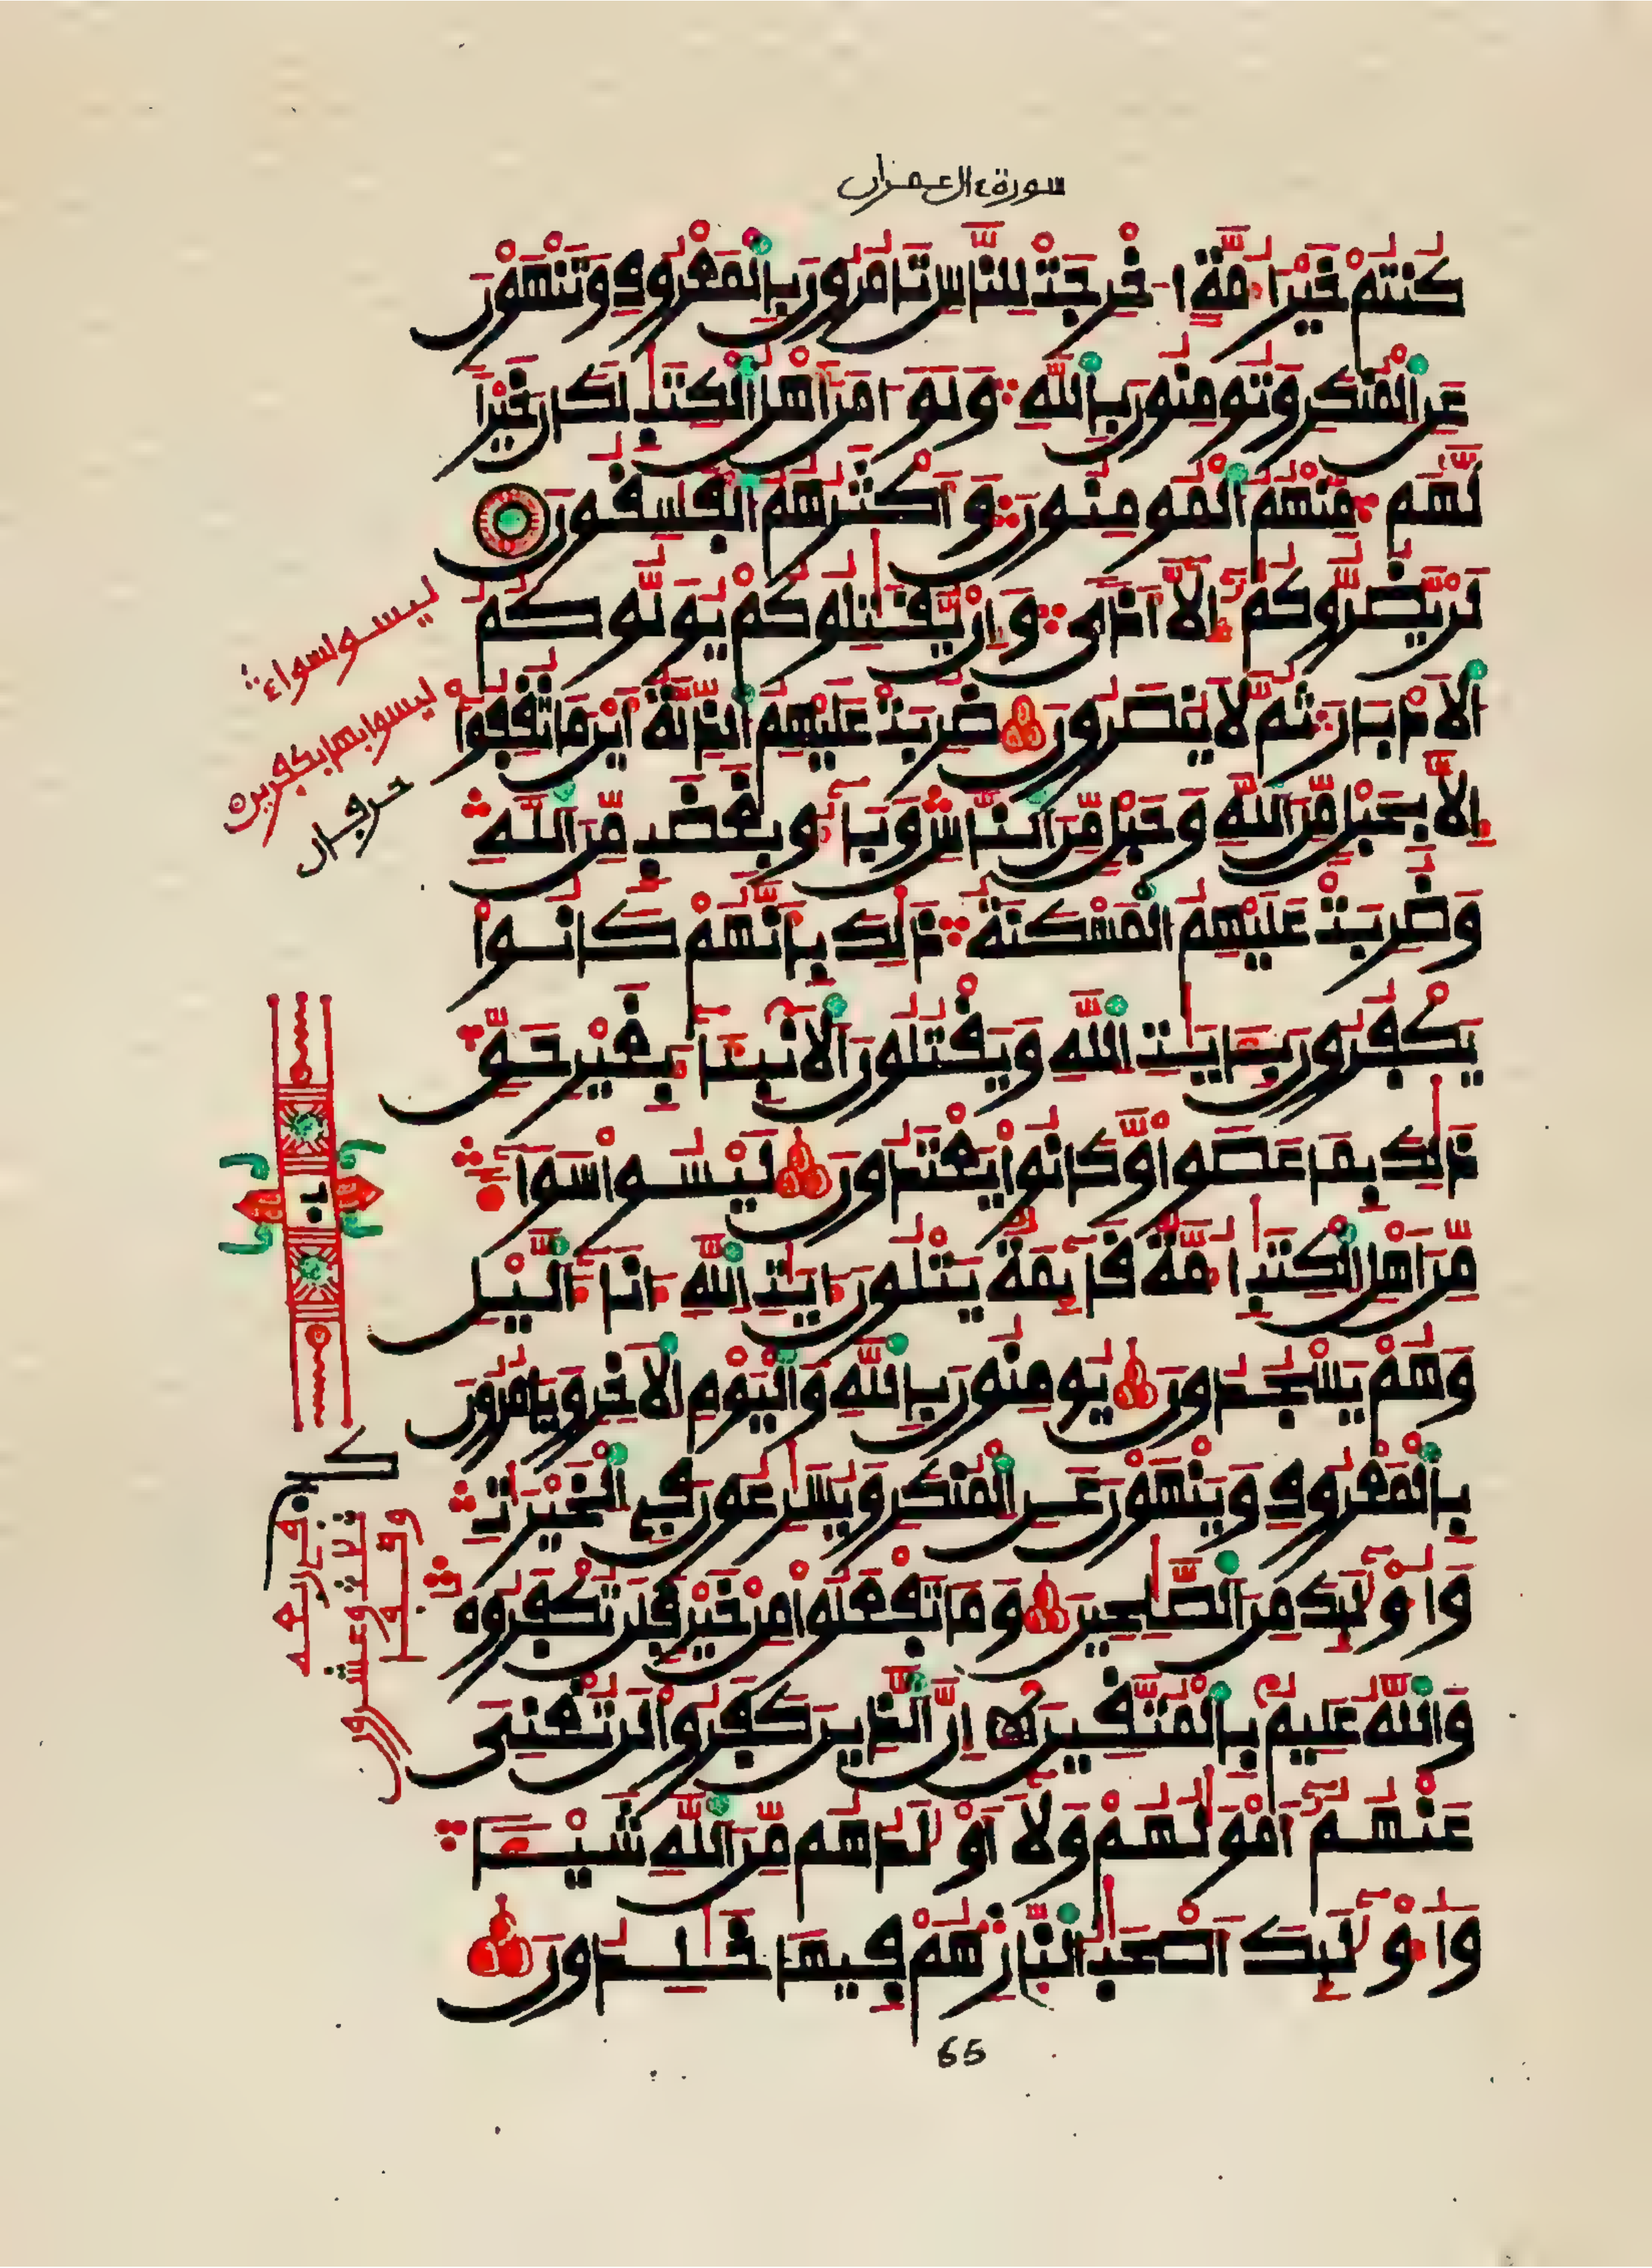 سورة ءال عمران
كُنتُمْ خَيْرَ أُمَّةٍ اخْرِجَتْ لِلنَّاسِ تَامُرُونَ بِالْمَعْرُوفِ وَتَنْهَوْنَ
عَنِ الْمُنكَرِ وَتُومِنُونَ بِاللَّهِ وَلَوَ امَنَ أَهْلُ الْكِتَٰبِ لَكَانَ خَيْراً
لَّهُم مِّنْهُمُ الْمُومِنُونَ وَأَكْثَرُهُمُ الْفَٰسِقُونَ
لَنْ يَّضُرُّوكُمُ إِلَّا أَذىً وَإِنْ يُّقَٰتِلُوكُمْ يُوَلُّوكُمُ
الَادْبَارَ ثُمَّ لَا يُنصَرُونَ ضُرِبَتْ عَلَيْهِمُ الذِّلَّةُ أَيْنَ مَا ثُقِفُوا
إِلَّا بِحَبْلٍ مِّنَ اللَّهِ وَحَبْلٍ مِّنَ النَّاسِ وَبَاءُو بِغَضَبٍ مِّنَ اللَّهِ
وَضُرِبَتْ عَلَيْهِمُ الْمَسْكَنَةُ ذَٰلِكَ بِأَنَّهُمْ كَانُوا
يَكْفُرُونَ بِـَٔايَٰتِ اللَّهِ وَيَقْتُلُونَ الَانۢبِيَآءَ بِغَيْرِ حَقٍّ
ذَٰلِكَ بِمَا عَصَوا وَّكَانُوا يَعْتَدُونَ لَيْسُوا سَوَآءً
مِّنَ اهْلِ الْكِتَٰبِ أُمَّةٌ قَآئِمَةٌ يَتْلُونَ ءَايَٰتِ اللَّهِ ءَانَآءَ الَّيْلِ
وَهُمْ يَسْجُدُونَ يُومِنُونَ بِاللَّهِ وَالْيَوْمِ الَاخِرِ وَيَامُرُونَ
بِالْمَعْرُوفِ وَيَنْهَوْنَ عَنِ الْمُنكَرِ وَيُسَٰرِعُونَ فِي الْخَيْرَٰتِ
وَأُوْلَٰٓئِكَ مِنَ الصَّٰلِحِينَ وَمَا تَفْعَلُوا مِنْ خَيْرٍ فَلَن تُكْفَرُوهُ
وَاللَّهُ عَلِيمٌ بِالْمُتَّقِينَ إِنَّ الَّذِينَ كَفَرُوا لَن تُغْنِىَ
عَنْهُمُ أَمْوَٰلُهُمْ وَلَآ أَوْلَٰدُهُم مِّنَ اللَّهِ شَيْـًٔا
وَأُوْلَٰٓئِكَ أَصْحَٰبُ النَّارِ هُمْ فِيهَا خَٰلِدُونَ
ليسوا سواء
ليسوا بها بكفرين
حرفان
65